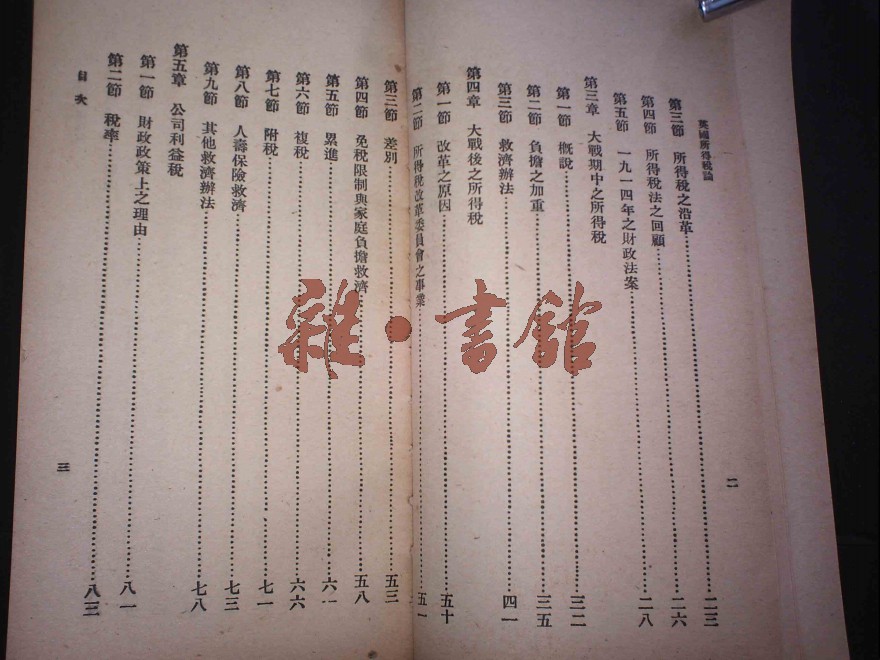 英國所得稅論
第三節　所得稅之沿革……二三
第四節　所得稅法之回顧……二六
第五節　一九一四年之財政法案……二八
第三章　大戰期中之所得稅
第一節　概說……三二
第二節　負擔之加重……三五
第三節　救濟辦法……四一
第四章　大戰後之所得稅
第一節　改革之原因……五十
第二節　所得稅改革委員會之事業……五一
二
第三節　差別……五三
第四節　免稅限制與家庭負擔救濟……五八
第五節　累進……六一
第六節　複稅……六六
第七節　附稅……七一
第八節　人壽保險救濟……七三
第九節　其他救濟辦法……七八
第五章　公司利益稅
第一節　財政政策上之理由……八一
第二節　稅率……八三
目次
三
雜·書館